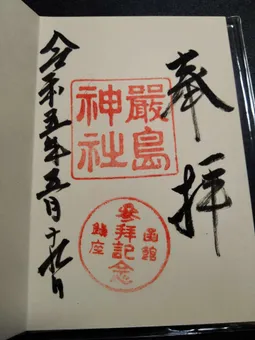 奉拝
嚴島
神社
函館
參拝記念
鎮座
令和五年五月十九日